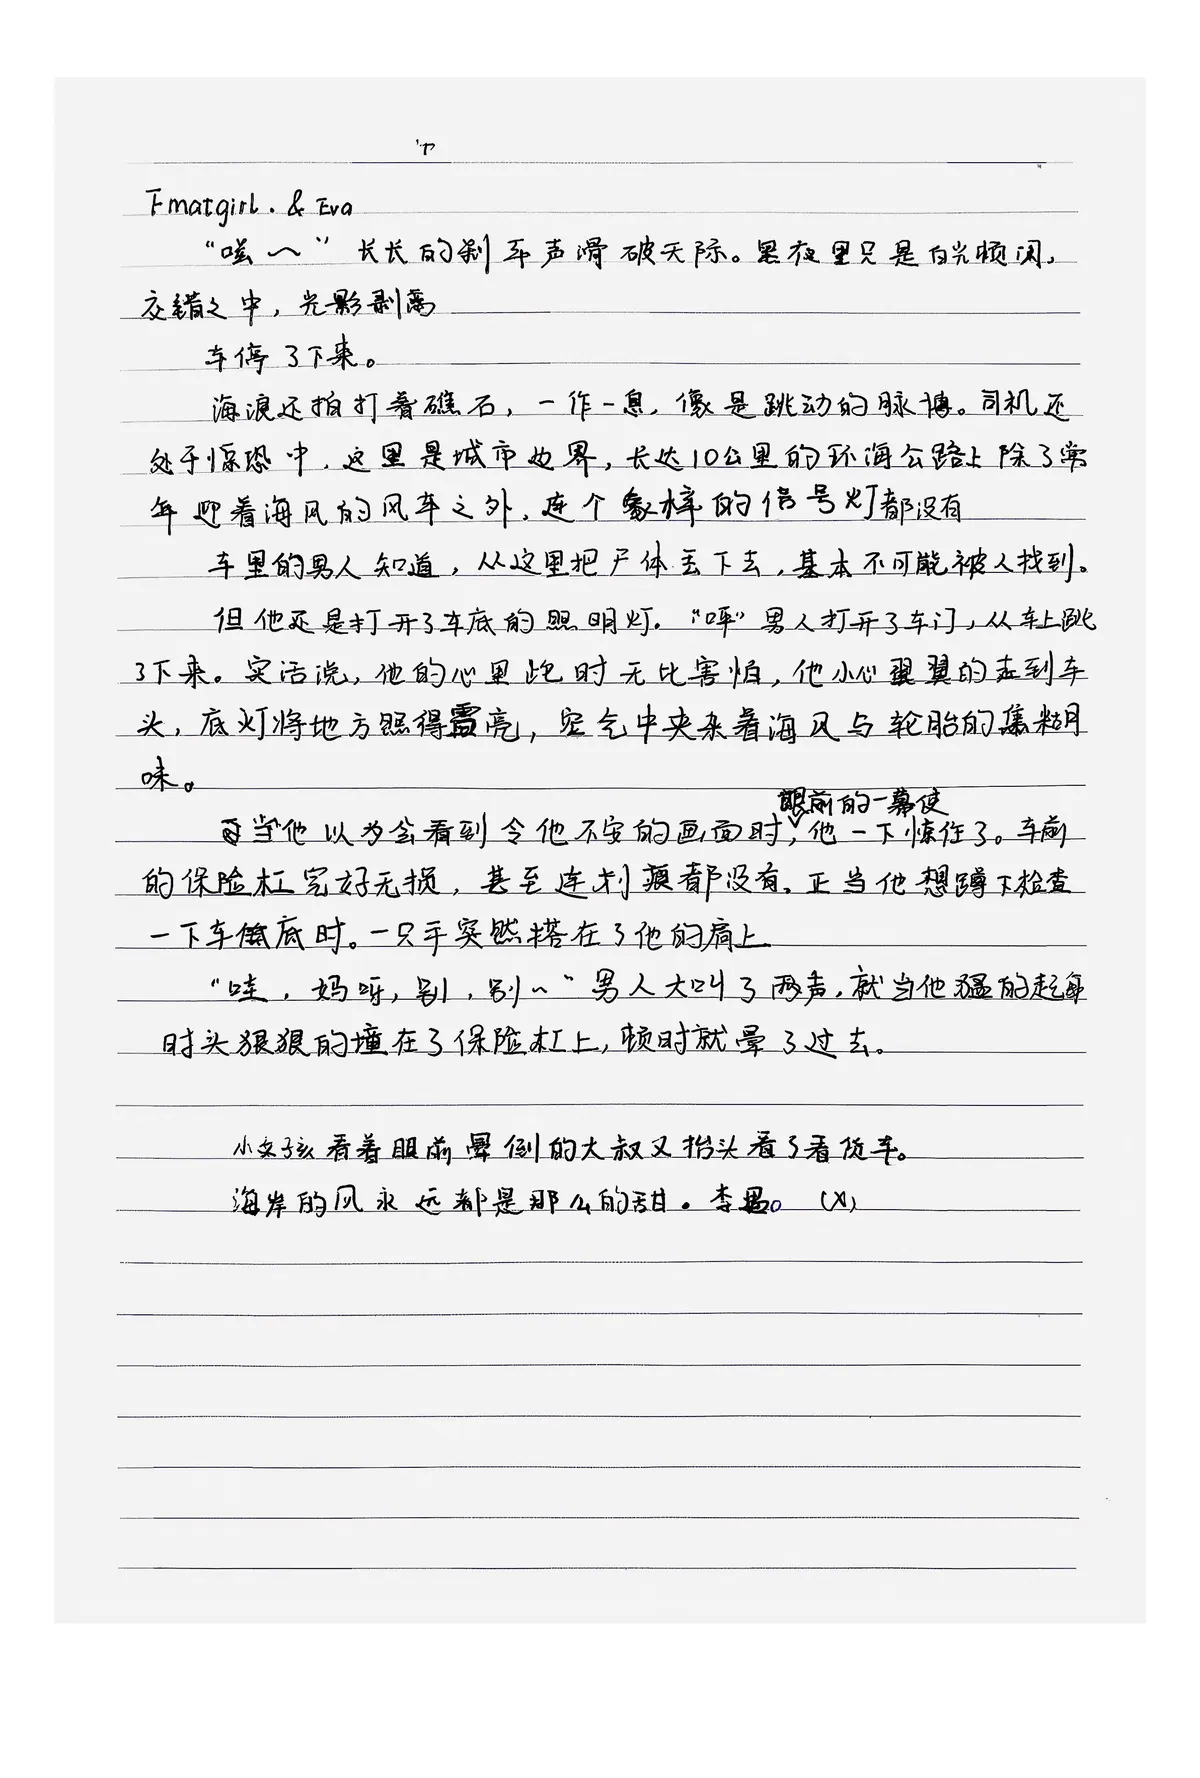 Fmatgirl. & Eva
“嗞～”长长的刹车声滑破天际。黑夜里只是白光频闪，
交错之中，光影剥离
车停了下来。
海浪还拍打着礁石，一作一息，像是跳动的脉博。司机还
处于惊恐中，这里是城市边界，长达10公里的环海公路上除了常
年迎着海风的风车之外，连个象样的信号灯都没有
车里的男人知道，从这里把尸体丢下去，基本不可能被人找到。
但他还是打开了车底的照明灯。“呯”男人打开了车门，从车上跳
了下来。实话说，他的心里此时无比害怕，他小心翼翼的走到车
头，底灯将地方照得雪亮，空气中夹杂着海风与轮胎的焦糊
味。
眼前的一幕使
当他以为会看到令他不安的画面时，他一下惊住了。车前
的保险杠完好无损，甚至连刹痕都没有。正当他想蹲下检查
一下车底时。一只手突然搭在了他的肩上
“哇，妈呀，别，别～”男人大叫了两声，就当他猛的起身
时头狠狠的撞在了保险杠上，顿时就晕了过去。
小女孩看着眼前晕倒的大叔又抬头看了看货车。
海岸的风永远都是那么的甜。李